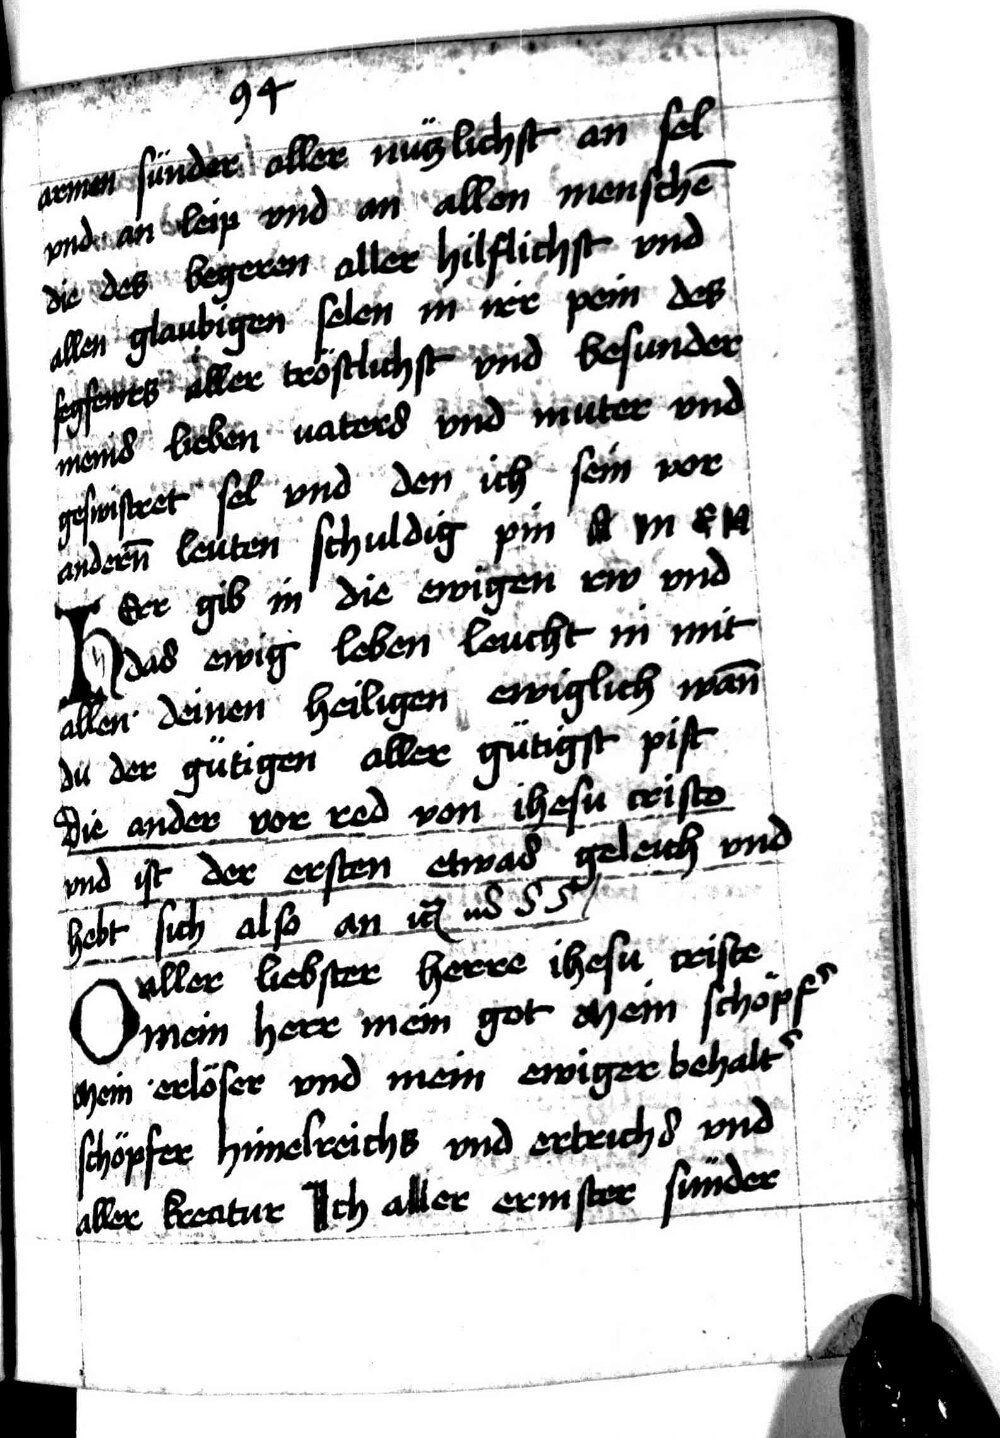 94
armen sünder aller nützlichst an sel
vnd an leip vnd an allen menschē
die des begeren aller hilflichst vnd
allen glaubigen selen in irr pein des
fegfewrs aller tröstlichst vnd besunder
meins lieben vaters vnd muter vnd
geswistret sel vnd den ich sein vor
anderñ leuten schuldig pin A M E N
HErr gib in die ewigen rw vnd
das ewig leben leucht in mit
allen deinen heiligen ewiglich wañ
du der gütigen aller gütigst pist
Die ander vor red von ihesu cristo
vnd ist der ersten etwas geleich vnd
hebt sich also an
O aller liebster herre ihesu criste
mein herr mein got mein schöpf
mein erlöser vnd mein ewiger behalt
schöpfer himelreichs vnd ertrichs vnd
aller kreatur Ich aller ermster sünder